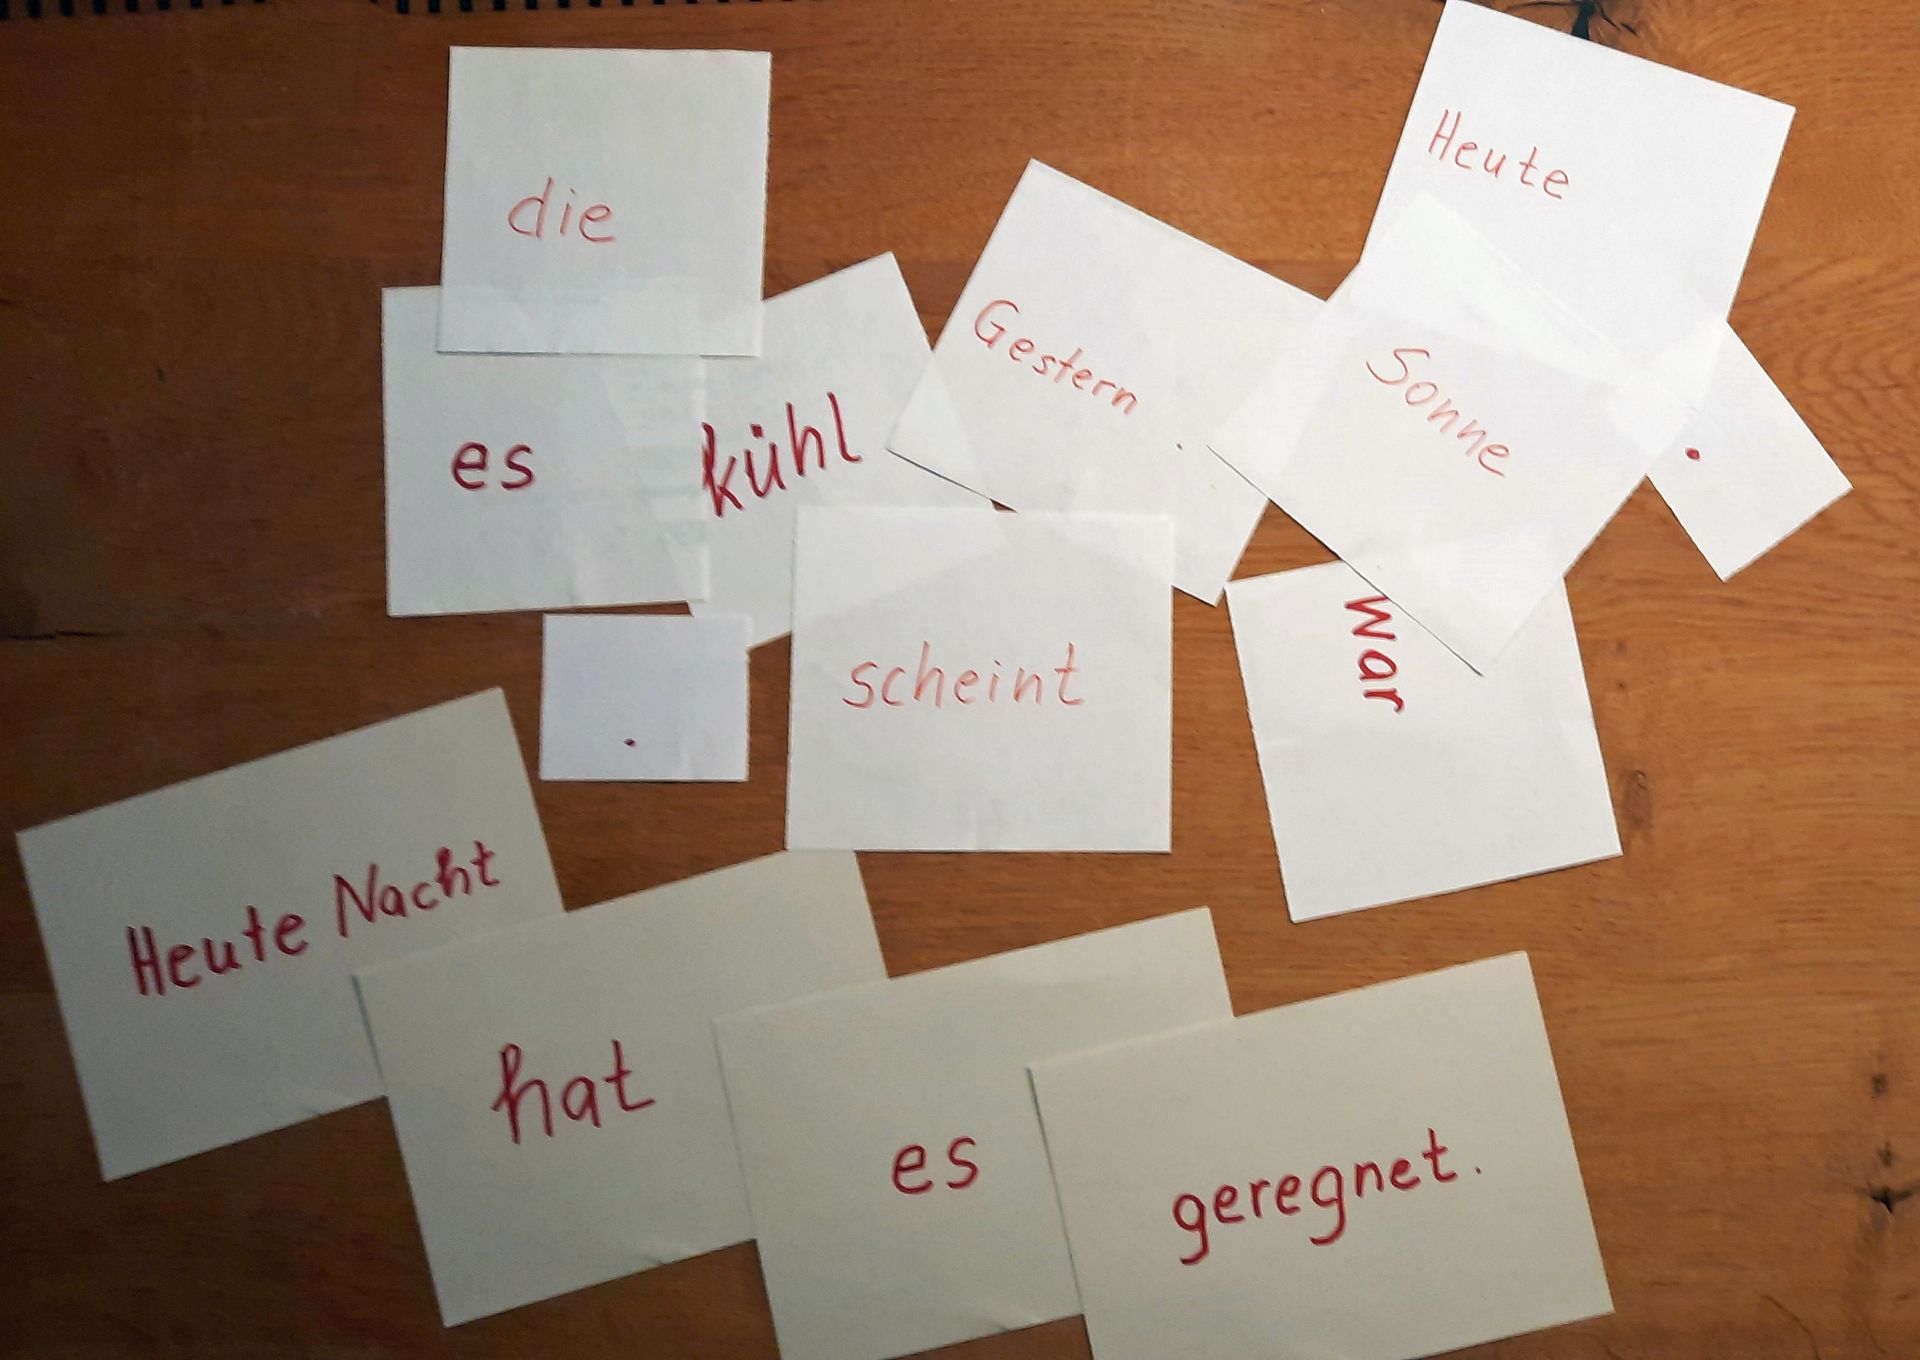 die
Heute
Gestern
Sonne
es
kühl
.
scheint
war
.
Heute Nacht
hat
es
geregnet.